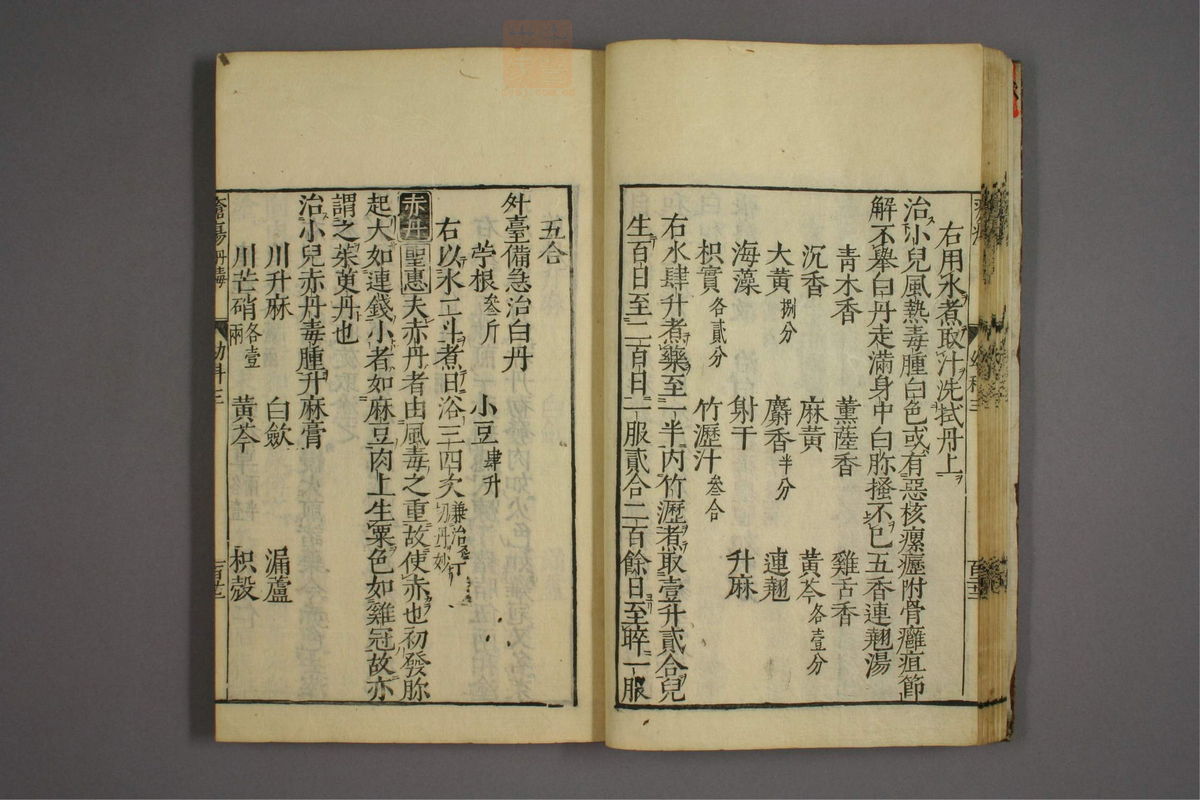 右用水煮取汁洗拭丹上
治小兒風熱毒腫白色或有惡核瘰癧附骨癰疽節
解不舉白丹走滿身中白胗搔不已五香連翹湯
青木香 薰薩香 雞舌香
沉香 麻黄 黄芩各壹分
大黄捌分 麝香半分 連翹
海藻 射干 升麻
枳實各貳分 竹瀝汁叄合
右水肆升煮藥至一半内竹瀝煮取壹升貳合兒
生百日至二百日一服貳合二百餘日至晬一服
五合
外臺備急治白丹
苧根叄斤 小豆肆升
右以水二斗煮日浴三四次兼治
切丹妙
赤丹聖惠夫赤丹者由風毒之重故使赤也初發胗
起大如連錢小者如麻豆肉上生粟色如雞冠故亦
謂之茱萸丹也
治小兒赤丹毒腫升麻膏
川升麻 白歛 漏蘆
川芒硝各壹兩 黄芩 枳殼